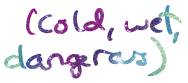 (cold, wet,
dangerous)